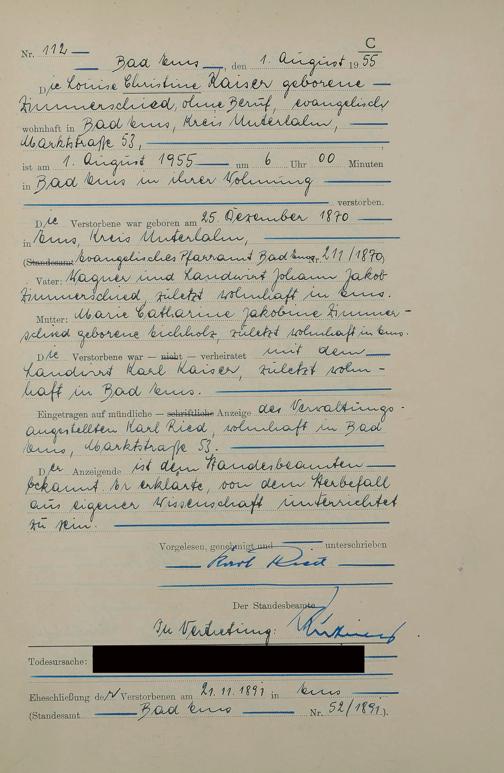 C
Nr. 112
Bad Ems, den 1. August 1955
Die Louise Christine Kaiser geborene
Zimmerschied, ohne Beruf, evangelisch
wohnhaft in Bad Ems, Kreis Unterlahn,
Marktstraße 53,
ist am 1. August 1955 um 6 Uhr 00 Minuten
in Bad Ems in ihrer Wohnung
verstorben.
Die Verstorbene war geboren am 25. Dezember 1870
in Ems, Kreis Unterlahn,
(Standesamt Evangelisches Pfarramt Bad Ems Nr. 211/1870)
Vater: Wagner und Landwirt Johann Jakob
Zimmerschied, zuletzt wohnhaft in Ems.
Mutter: Marie Catharine Jakobine Zimmer-
schied geborene Eichholz, zuletzt wohnhaft in Ems.
Die Verstorbene war — nicht — verheiratet mit dem
Landwirt Karl Kaiser, zuletzt wohn-
haft in Bad Ems.
Eingetragen auf mündliche — schriftliche Anzeige des Verwaltungs-
angestellten Karl Ried, wohnhaft in Bad
Ems, Marktstraße 53.
Der Anzeigende ist dem Standesbeamten
bekannt. Er erklärte, von dem Sterbefall
aus eigener Wissenschaft unterrichtet
zu sein.
Vorgelesen, genehmigt und unterschrieben
Karl Ried
Der Standesbeamte
In Vertretung:
Todesursache:
Eheschließung der Verstorbenen am 21.11.1891 in Ems
(Standesamt Bad Ems Nr. 52/1891).